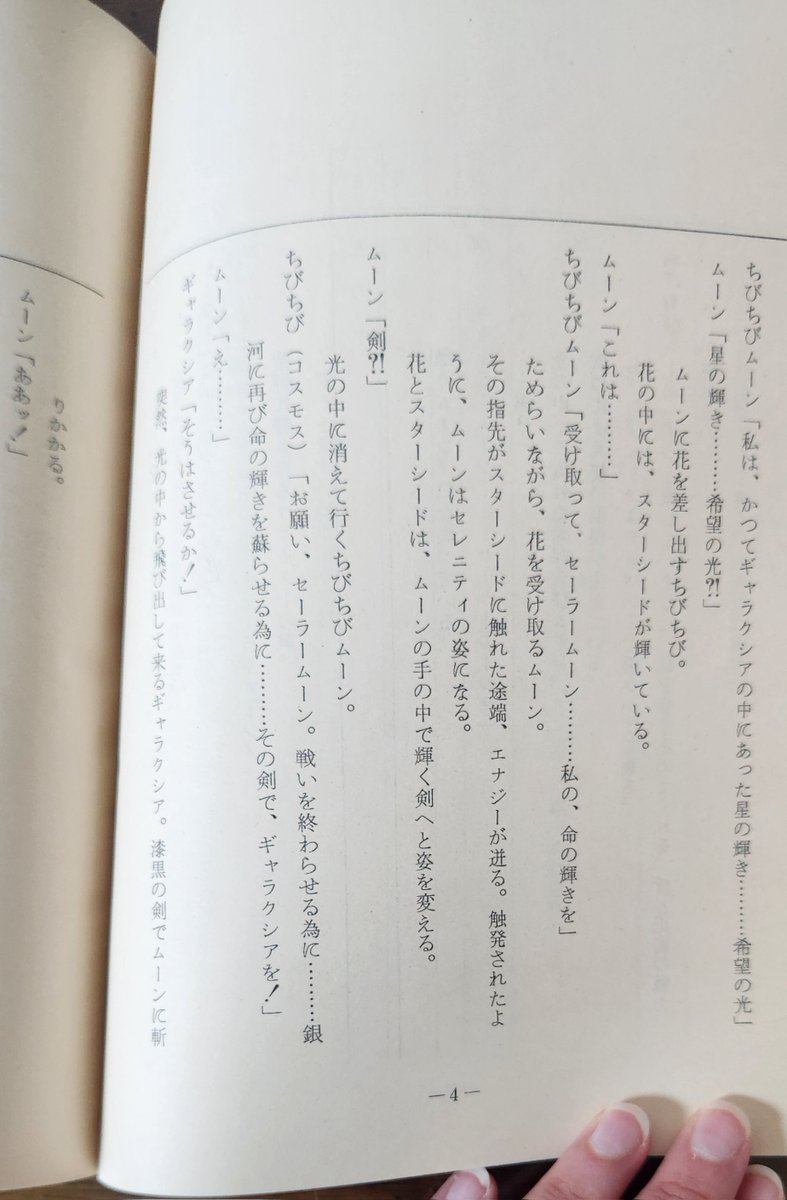 ちびちびムーン「私は、かつてギャラクシアの中にあった星の輝き………希望の光」
ムーン「星の輝き………希望の光?!」
ムーンに花を差し出すちびちび。
花の中には、スターシードが輝いている。
ムーン「これは………」
ちびちびムーン「受け取って、セーラームーン………私の、命の輝きを」
ためらいながら、花を受け取るムーン。
その指先がスターシードに触れた途端、エナジーが迸る。触発されたよ
うに、ムーンはセレニティの姿になる。
花とスターシードは、ムーンの手の中で輝く剣へと姿を変える。
ムーン「剣?!」
光の中に消えて行くちびちびムーン。
ちびちび（コスモス）「お願い、セーラームーン。戦いを終わらせる為に………銀
河に再び命の輝きを蘇らせる為に………その剣で、ギャラクシアを！」
ムーン「え………」
ギャラクシア「そうはさせるか！」
突然、光の中から飛び出して来るギャラクシア。漆黒の剣でムーンに斬
―4―
りかかる。
ムーン「ああッ！」